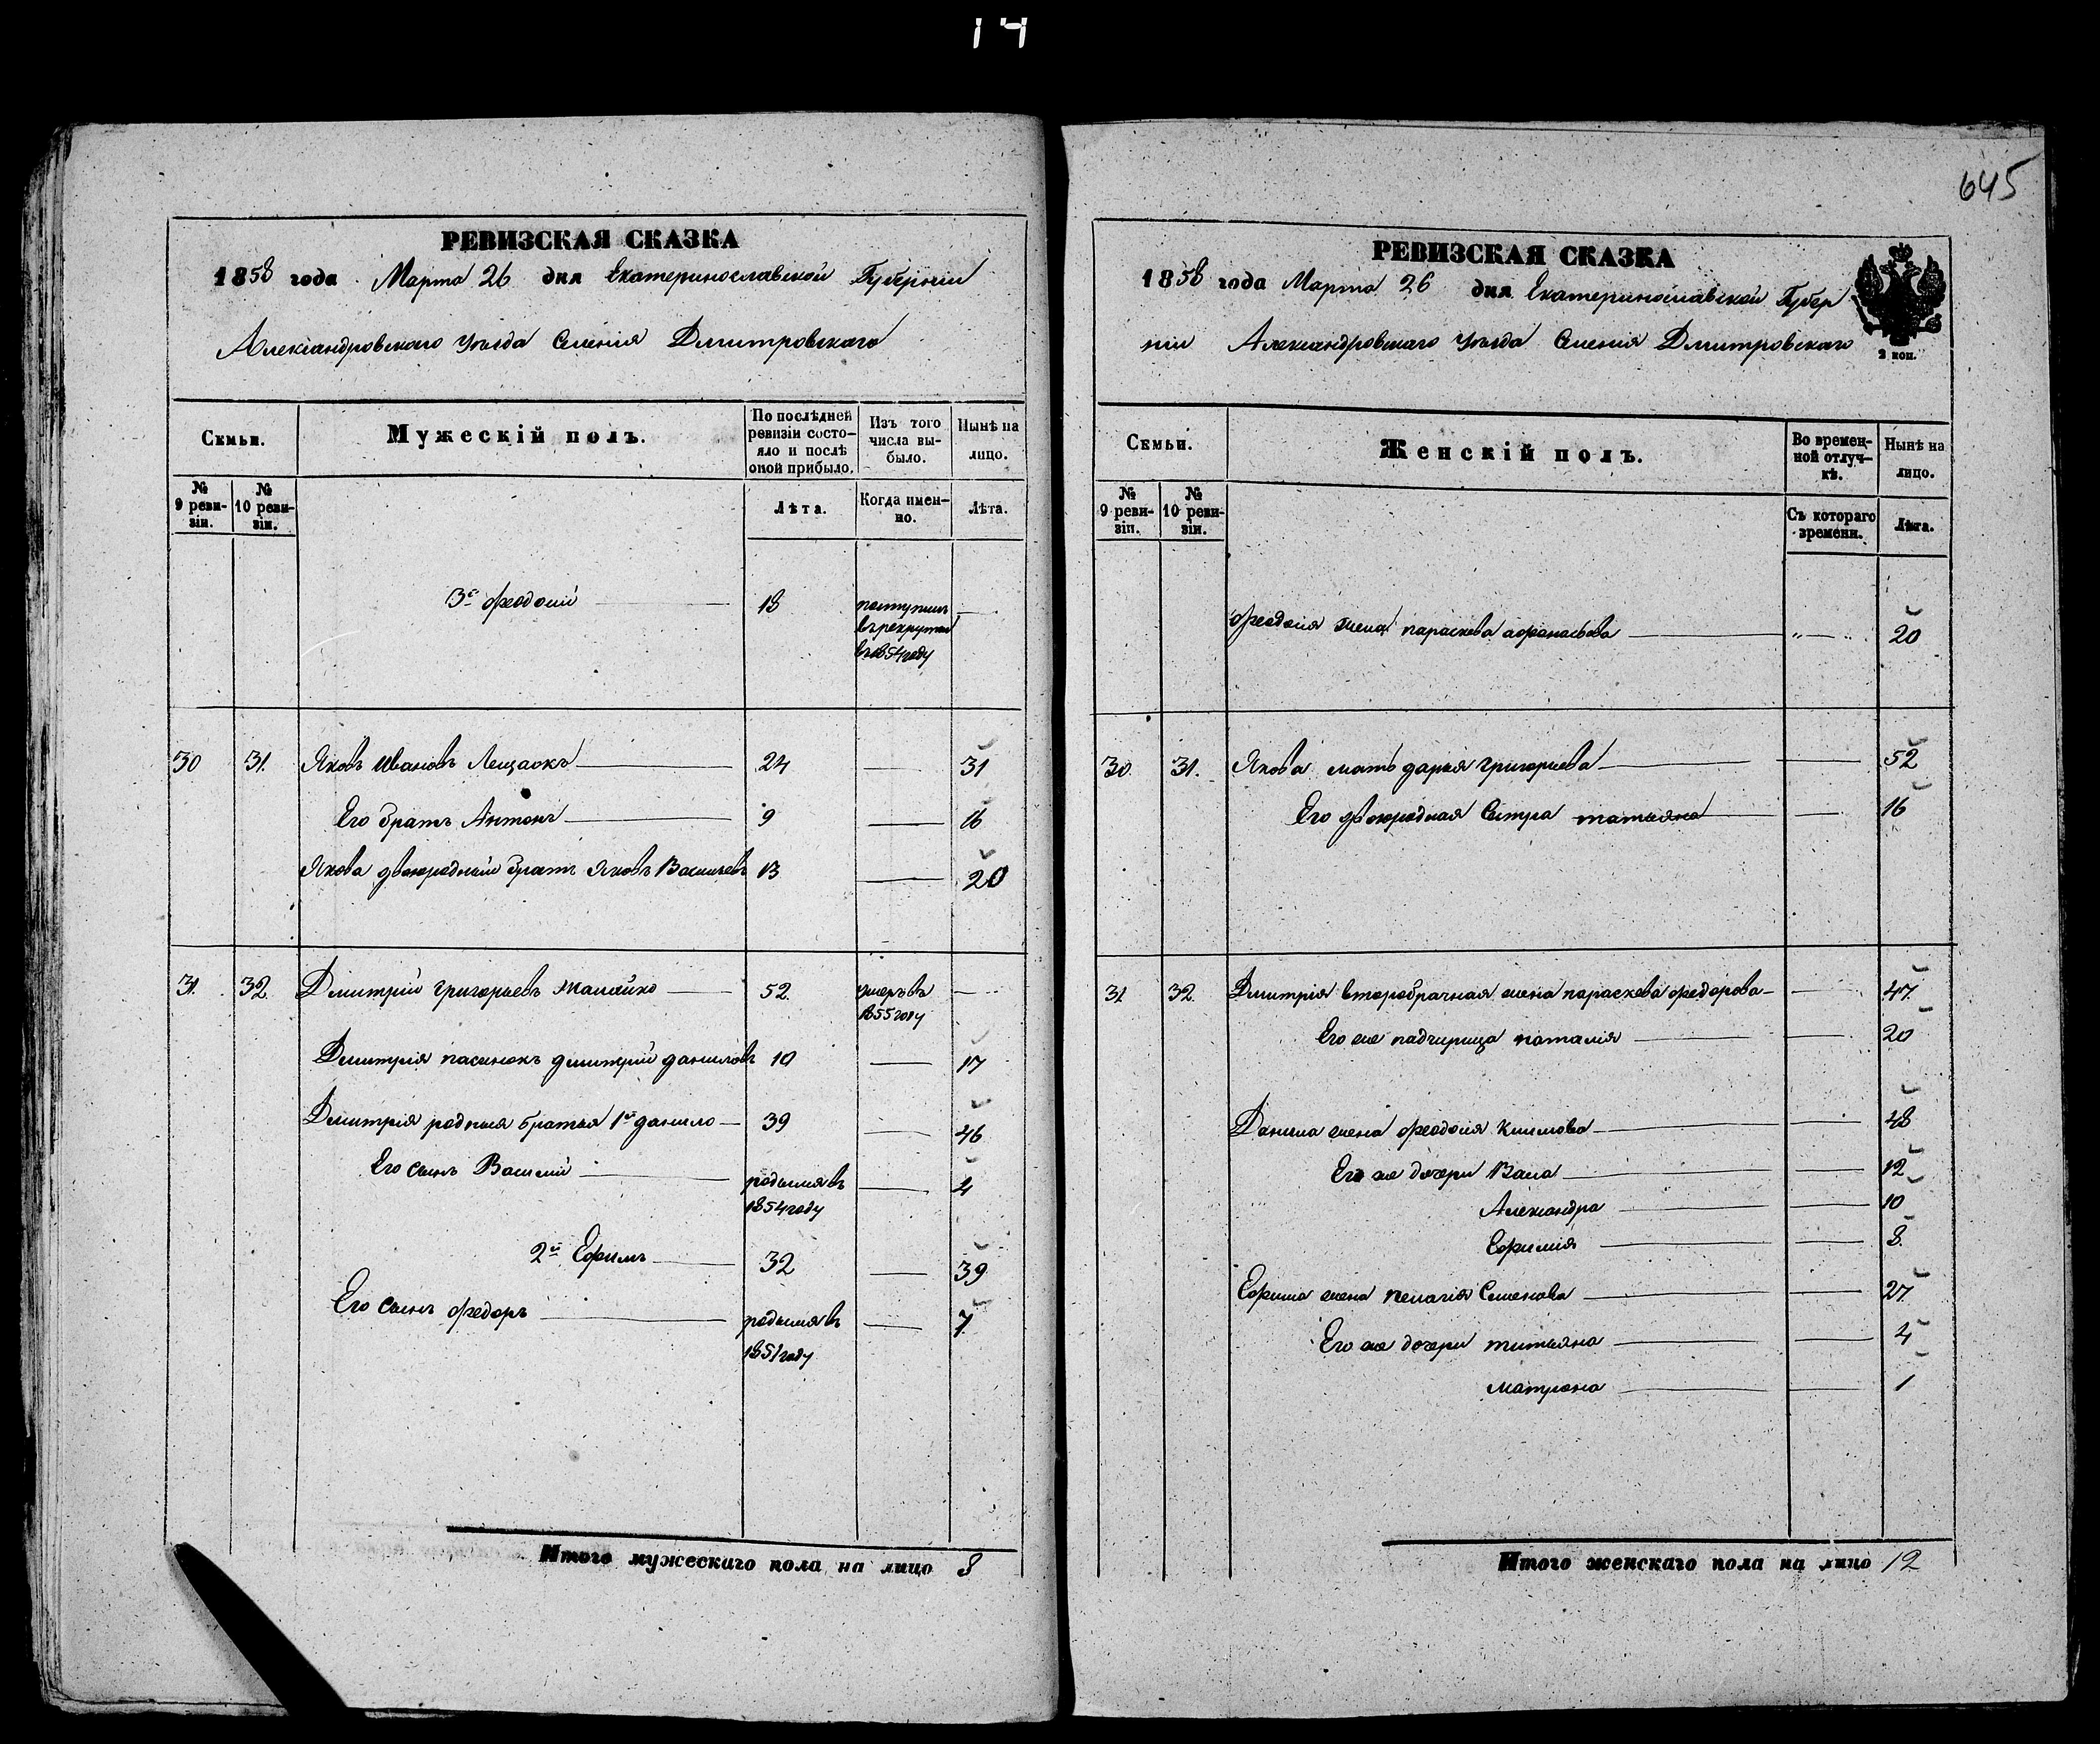 14
645
РЕВИЗСКАЯ СКАЗКА
1858 года Марта 26 дня Екатеринославской Губерніи
Александровского Уѣзда Селенія Дмитровского
Семьи.
Мужескій полъ.
По послѣдней ревизіи состояло и послѣ оной прибыло.
Изъ того числа выбыло.
Нынѣ на лицо.
№ 9 ревизіи.
№ 10 ревизіи.
Лѣта.
Когда именно.
Лѣта.
3й Феодосій 18 поступилъ
въ рекруты
въ 1854 году
30 31. Яковъ Ивановъ Лещаокъ 24 31
Его братъ Антонъ 9 16
Якова двоюродный братъ Яковъ Васильевъ 13 20
31. 32. Дмитрій Григорьевъ 52. умеръ въ
1855 году
Дмитрія пасынокъ Дмитрій Даниловъ 10 17
Дмитрія родныя братья 1й Данило 39 46
Его сынъ Василій родился въ 4
1854 году
2й Ефимъ 32 39
Его сынъ Федоръ родился въ 7.
1851 году
Итого мужескаго пола на лицо 8
РЕВИЗСКАЯ СКАЗКА
1858 года Марта 26 дня Екатеринославской Губер
ніи Александровского Уѣзда Селенія Дмитровского
2 коп.
Семьи.
Женскій полъ.
Во временной отлучкѣ.
Нынѣ на лицо.
№ 9 ревизіи.
№ 10 ревизіи.
Съ котораго времени.
Лѣта.
Феодосія жена Параскева Афанасьева 20
30. 31. Якова мать Дарья Григорьева 52
Его двоюродная Сестра Татьяна 16
31 32. Дмитрія второбрачная жена Параскева Федорова 47.
Его же падчирица Наталія 20
Данила жена Феодосія Климова 48
Его же дочери Васа 12
Александра 10
Ефимія 8.
Ефима жена Пелагія Семенова 27.
Его же дочери Титьяна 4
Матрона 1
Итого женскаго пола на лицо 12